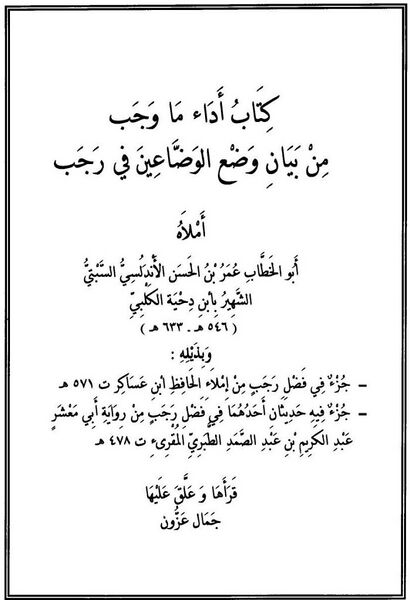 كِتَابُ أَدَاء مَا وَجَب
مِنْ بَيَانِ وَضْعِ الوَضَّاعِينَ فِي رَجَب
أَمْلاَهُ
أَبُو الخَطَّابِ عُمَرُ بْنُ الحَسَنِ الأَنْدَلُسِيُّ السَّبْتِيُّ
الشَّهِيرُ بِابْنِ دِحْيَةَ الكَلْبِيِّ
( ٥٤٦ هـ ـ ٦٣٣ هـ )
وَبِذَيْلِهِ :
ـ جُزْءٌ فِي فَضْلِ رَجَبٍ مِنْ إِمْلاَءِ الحَافِظِ ابْنِ عَسَاكِر ت ٥٧١ هـ
ـ جُزْءٌ فِيهِ حَدِيثَانِ أَحَدُهُمَا فِي فَضْلِ رَجَبٍ مِنْ رِوَايَةِ أَبِي مَعْشَرٍ
عَبْدِ الكَرِيمِ بْنِ عَبْدِ الصَّمَدِ الطَّبَرِيِّ المُقْرِىءِ ت ٤٧٨ هـ
قَرَأَهَا وَ عَلَّقَ عَلَيْهَا
جَمَال عَزُّون